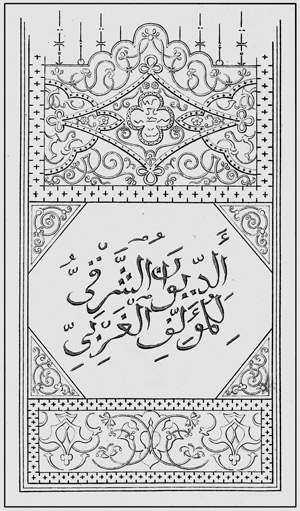 ألدّيوان الشّرقيّ
للمؤلّف الغربيّ